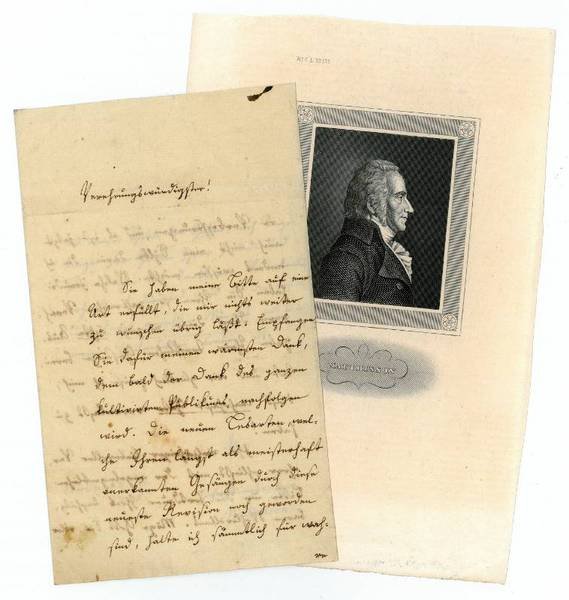 Verehrungswürdigster!
Sie haben meine Bitte auf eine
Art erfüllt, die mir nichts weiter
zu wünschen übrig läßt. Empfangen
Sie dafür meinen wärmsten Dank,
dem bald der Dank des ganzen
kultivirten Publikums, nachfolgen
wird. Die neuen Lesarten, wel-
che Ihren längst als meisterhaft
anerkannten Gesängen durch diese
neueste Revision noch geworden
sind, halte ich sämmtlich für wah-
re
MATTHISSON